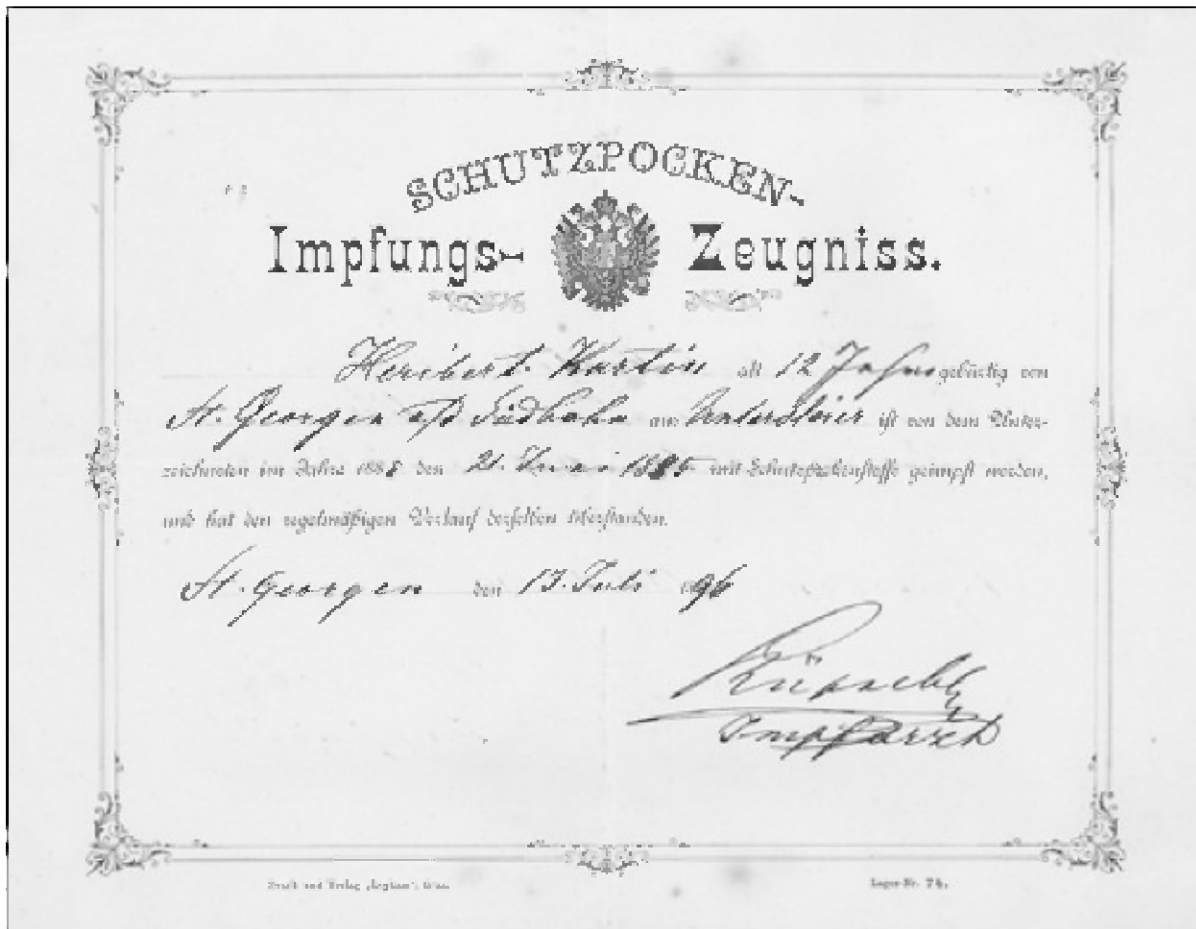 SCHUTZPOCKEN-
Impfungs- Zeugniss.
Heribert alt 12 Jahre gebürtig von
St. Georgen a/d Südbahn aus ist von dem Unter-
zeichneten im Jahre 188 den 21. Juni 1885 mit Schutzpockenstoffe geimpft worden,
und hat den regelmäßigen Verlauf derselben überstanden.
St. Georgen den 13. Juli 96
Impfarzt
Druck und Verlag
Lager-Nr. 74.